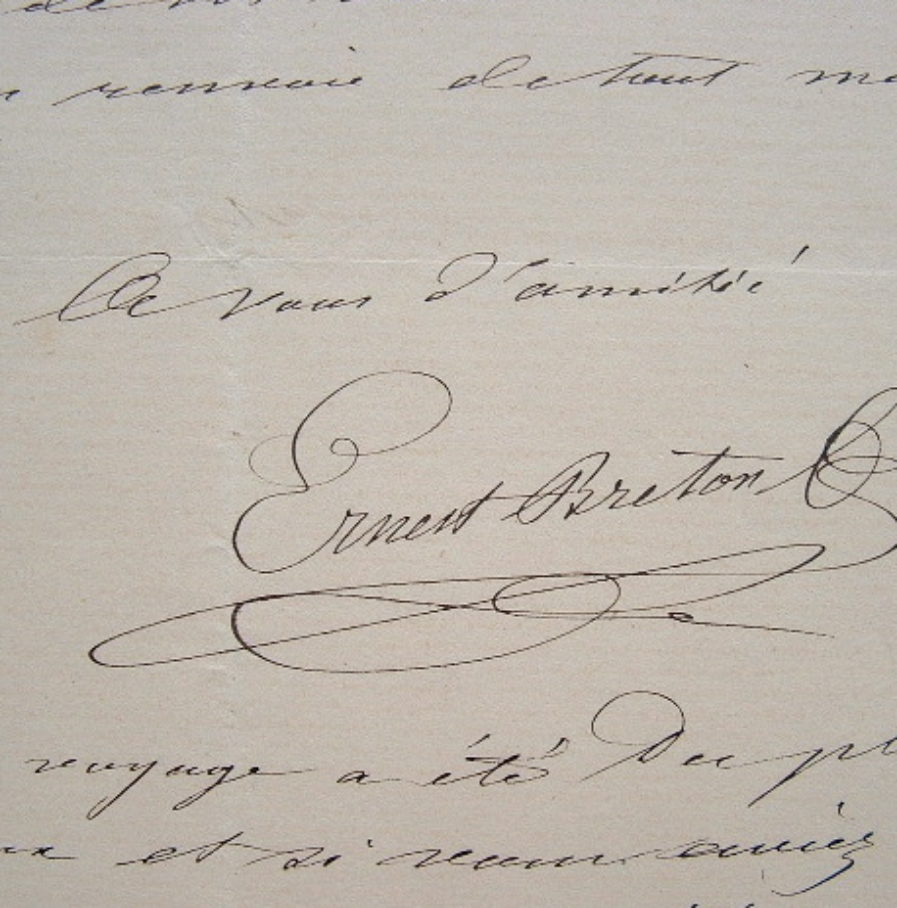 de vos
renvoie de tout
à vous d'amitié
Ernest Breton
voyage a été Du pl
et si vous aviez